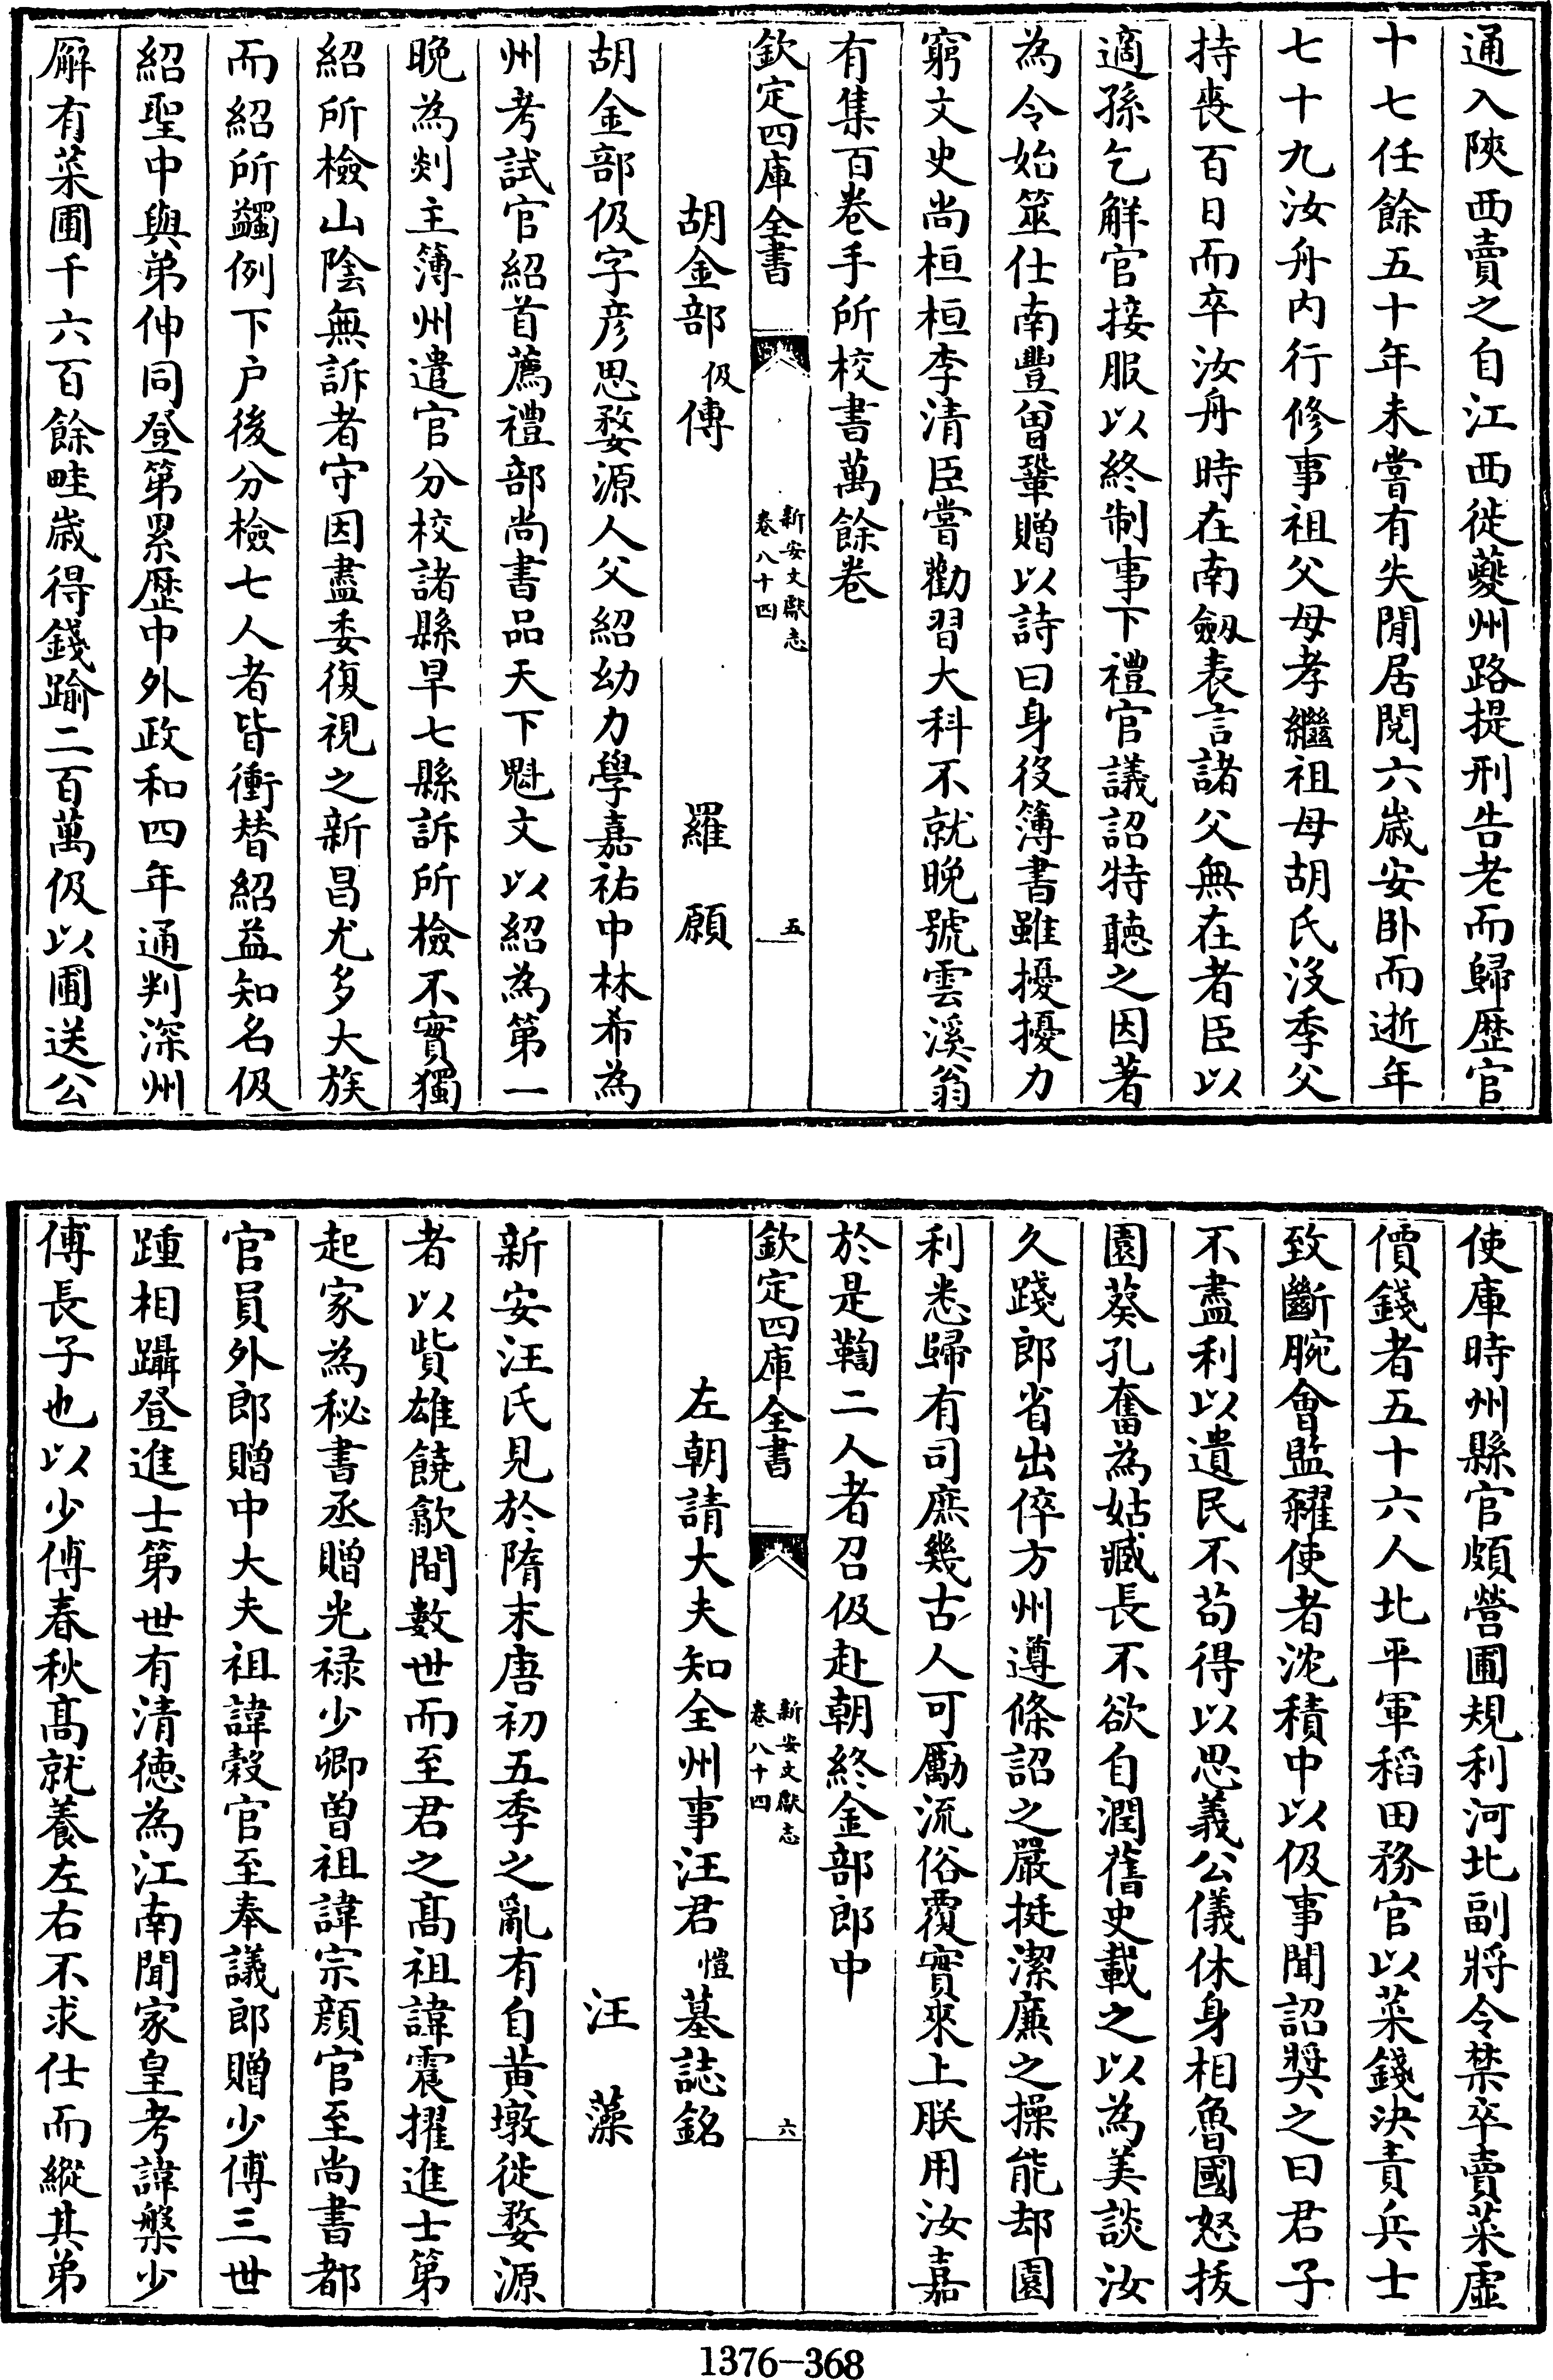 通入陜西賣之自江西徙夔州路提刑告老而歸歴官
十七任餘五十年未嘗有失閒居閱六歳安卧而逝年
七十九汝舟内行修事祖父母孝繼祖母胡氏沒季父
持喪百日而卒汝舟時在南劔表言諸父無在者臣以
適孫乞解官接服以終制事下禮官議詔特聽之因著
為令始筮仕南豐曽鞏贈以詩曰身役簿書雖擾擾力
窮文史尚桓桓李清臣嘗勸習大科不就晚號雲溪翁
有集百卷手所校書萬餘卷
欽定四庫全書
新安文獻志
卷八十四
五
胡金部伋傳
羅願
胡金部伋字彦思婺源人父紹幼力學嘉祐中林希為
州考試官紹首薦禮部尚書品天下魁文以紹為第一
晚為剡主簿州遣官分校諸縣旱七縣訴所檢不實獨
紹所檢山陰無訴者守因盡委復視之新昌尤多大族
而紹所蠲例下户後分檢七人者皆衝替紹益知名伋
紹聖中與弟伸同登第累歴中外政和四年通判深州
廨有菜圃千六百餘畦歳得錢踰二百萬伋以圃送公
使庫時州縣官頗營圃規利河北副將令禁卒賣菜虚
價錢者五十六人北平軍稻田務官以菜錢決責兵士
致斷腕會監糴使者沈積中以伋事聞詔奬之曰君子
不盡利以遺民不茍得以思義公儀休身相魯國怒拔
園葵孔奮為姑臧長不欲自潤舊史載之以為美談汝
久踐郎省出倅方州遵條詔之嚴挺潔亷之操能却園
利悉歸有司庶幾古人可勵流俗覆實來上朕用汝嘉
於是鞫二人者召伋赴朝終金部郎中
欽定四庫全書
新安文獻志
卷八十四
六
左朝請大夫知全州事汪君愷墓誌銘
汪藻
新安汪氏見於隋末唐初五季之亂有自黄墩徙婺源
者以貲雄饒歙間數世而至君之髙祖諱震擢進士第
起家為秘書丞贈光禄少卿曽祖諱宗顔官至尚書都
官員外郎贈中大夫祖諱榖官至奉議郎贈少傅三世
踵相躡登進士第世有清徳為江南聞家皇考諱槃少
傅長子也以少傅春秋髙就養左右不求仕而縱其弟
1376-368